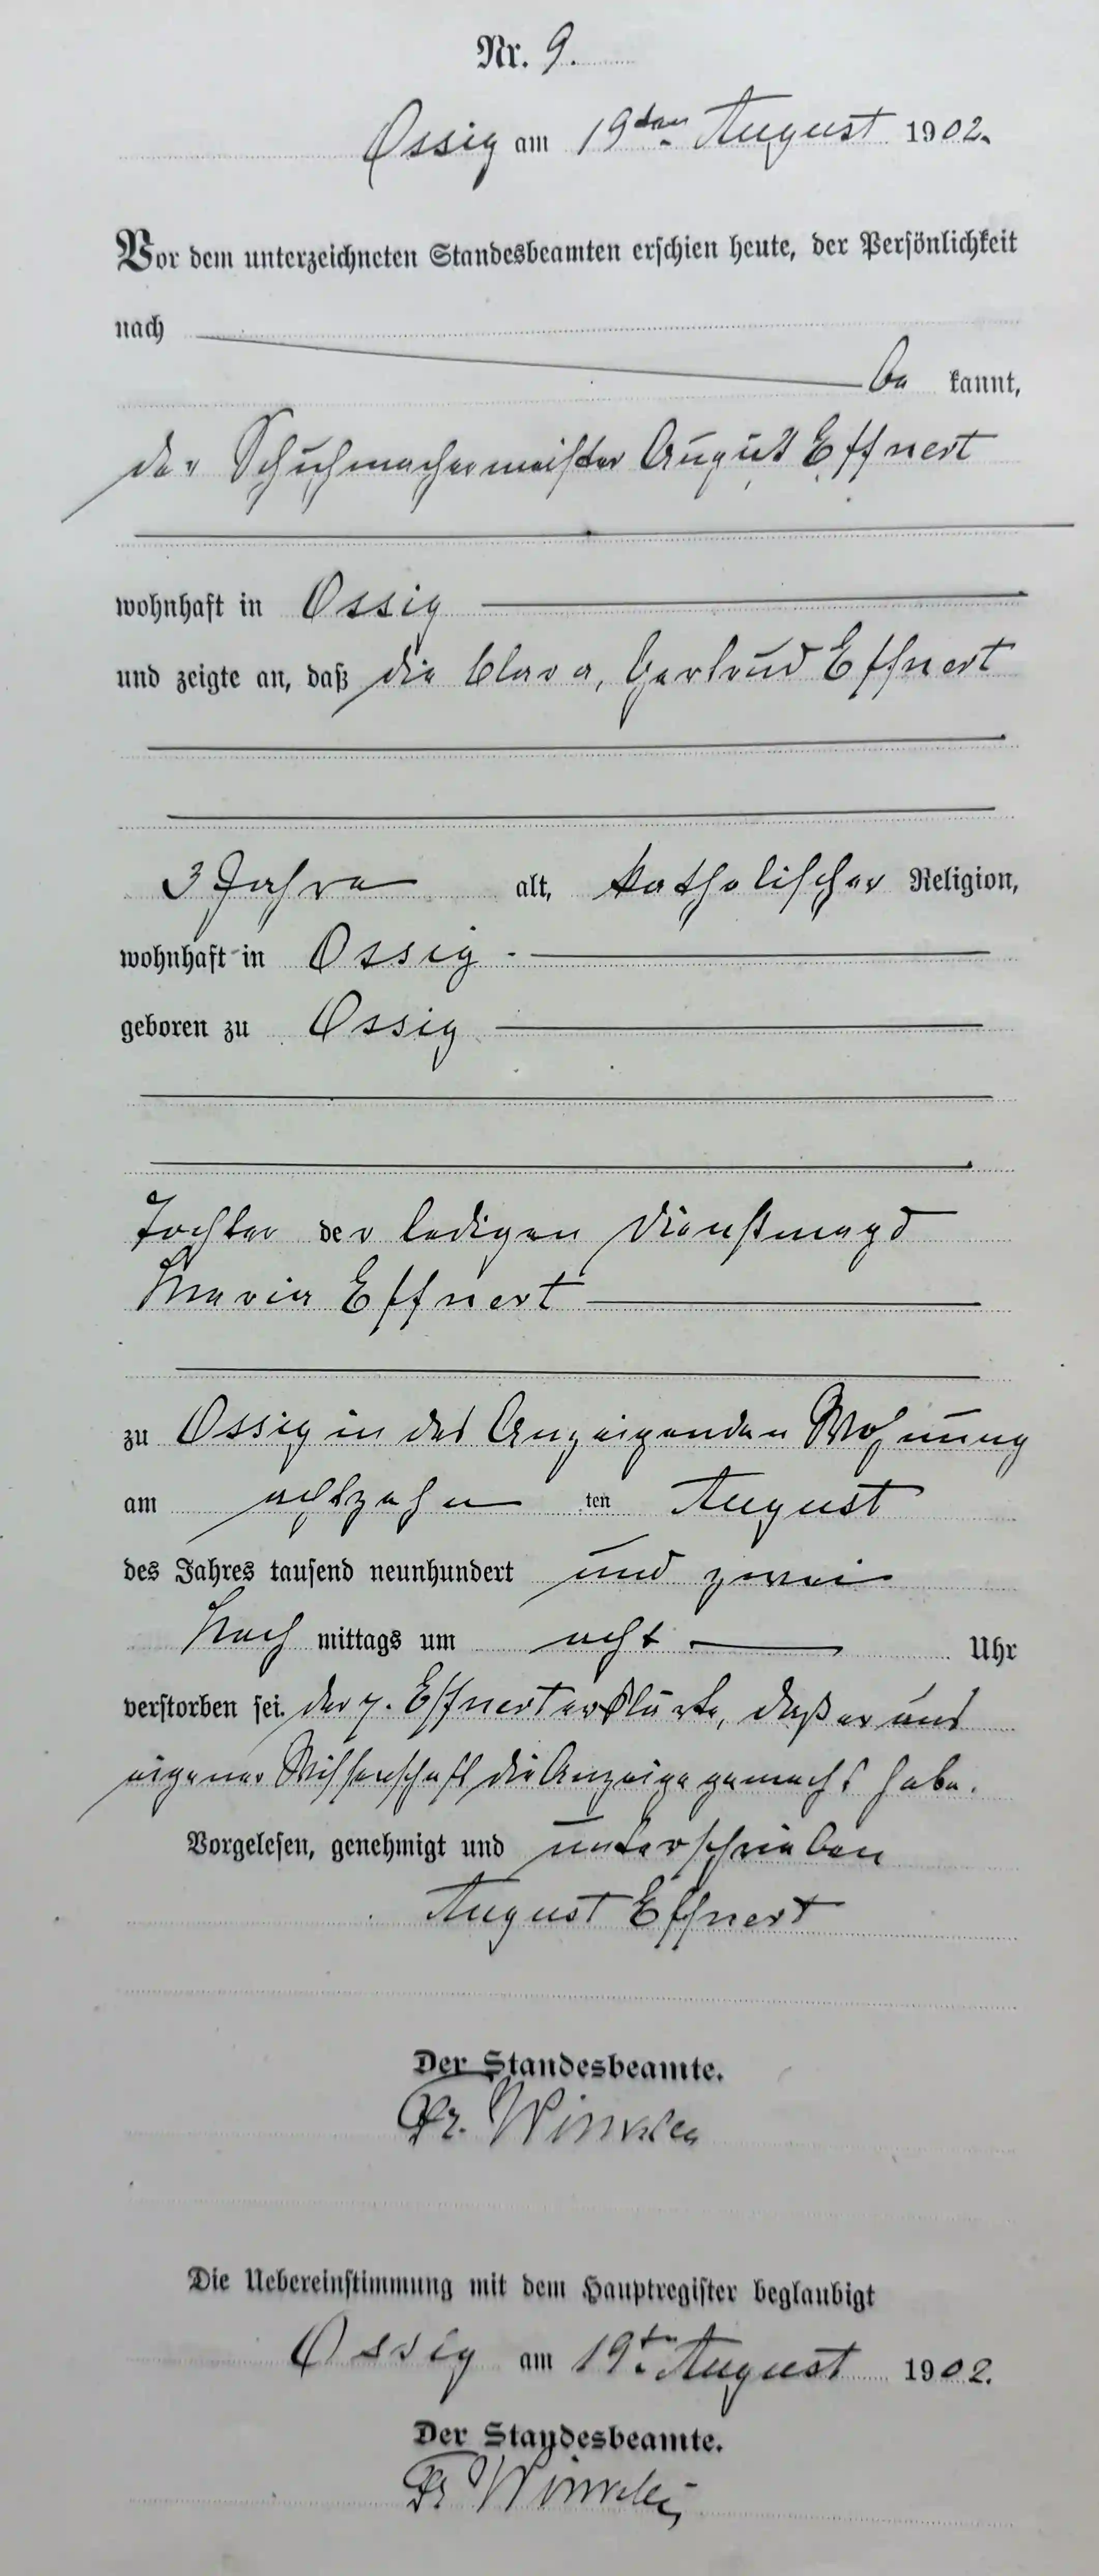 Nr. 9.
Ossig am 19ten August 1902.
Vor dem unterzeichneten Standesbeamten erschien heute, der Persönlichkeit
nach
be kannt,
der Schuhmachermeister August Effnert
wohnhaft in Ossig
und zeigte an, daß die Clara, Gertrud Effnert
3 Jahre alt, katholischer Religion,
wohnhaft in Ossig
geboren zu Ossig
Tochter der ledigen Dienstmagd
Maria Effnert
zu Ossig in des Anzeigenden Wohnung
am achtzehn ten August
des Jahres tausend neunhundert und zwei
Nach mittags um acht Uhr
verstorben sei. der p. Effnert erklärte, daß er aus
eigener Wissenschaft die Anzeige gemacht habe.
Vorgelesen, genehmigt und unterschrieben
August Effnert
Der Standesbeamte.
Fr. Winkler
Die Uebereinstimmung mit dem Hauptregister beglaubigt
Ossig am 19t. August 1902.
Der Standesbeamte.
Fr Winkler